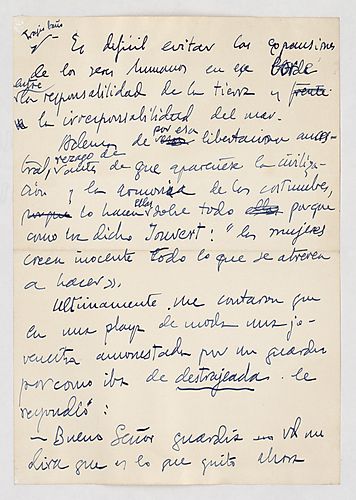 Trajes baño
Es difícil evitar las expansiones
de los seres humanos en ese borde
entre
la responsabilidad de la tierra y frente
a la irresponsabilidad del mar.
por esa
Dolemos de libertaciones ances-
tral, rezago de antes de que apareciese la civiliza-
ción y la armonía de las costumbres,
porque lo hacen ellas sobre todo ellas porque
como ha dicho Jouvert: "las mujeres
creen inocente todo lo que se atreven
a hacer».
Ultimamente me contaron que
en una playa de moda una jo-
vencita amonestada por un guardia
por como iba de destrajeada le
respondió:
— Bueno Señor guardia — Vd me
dira que es lo que quito ahora